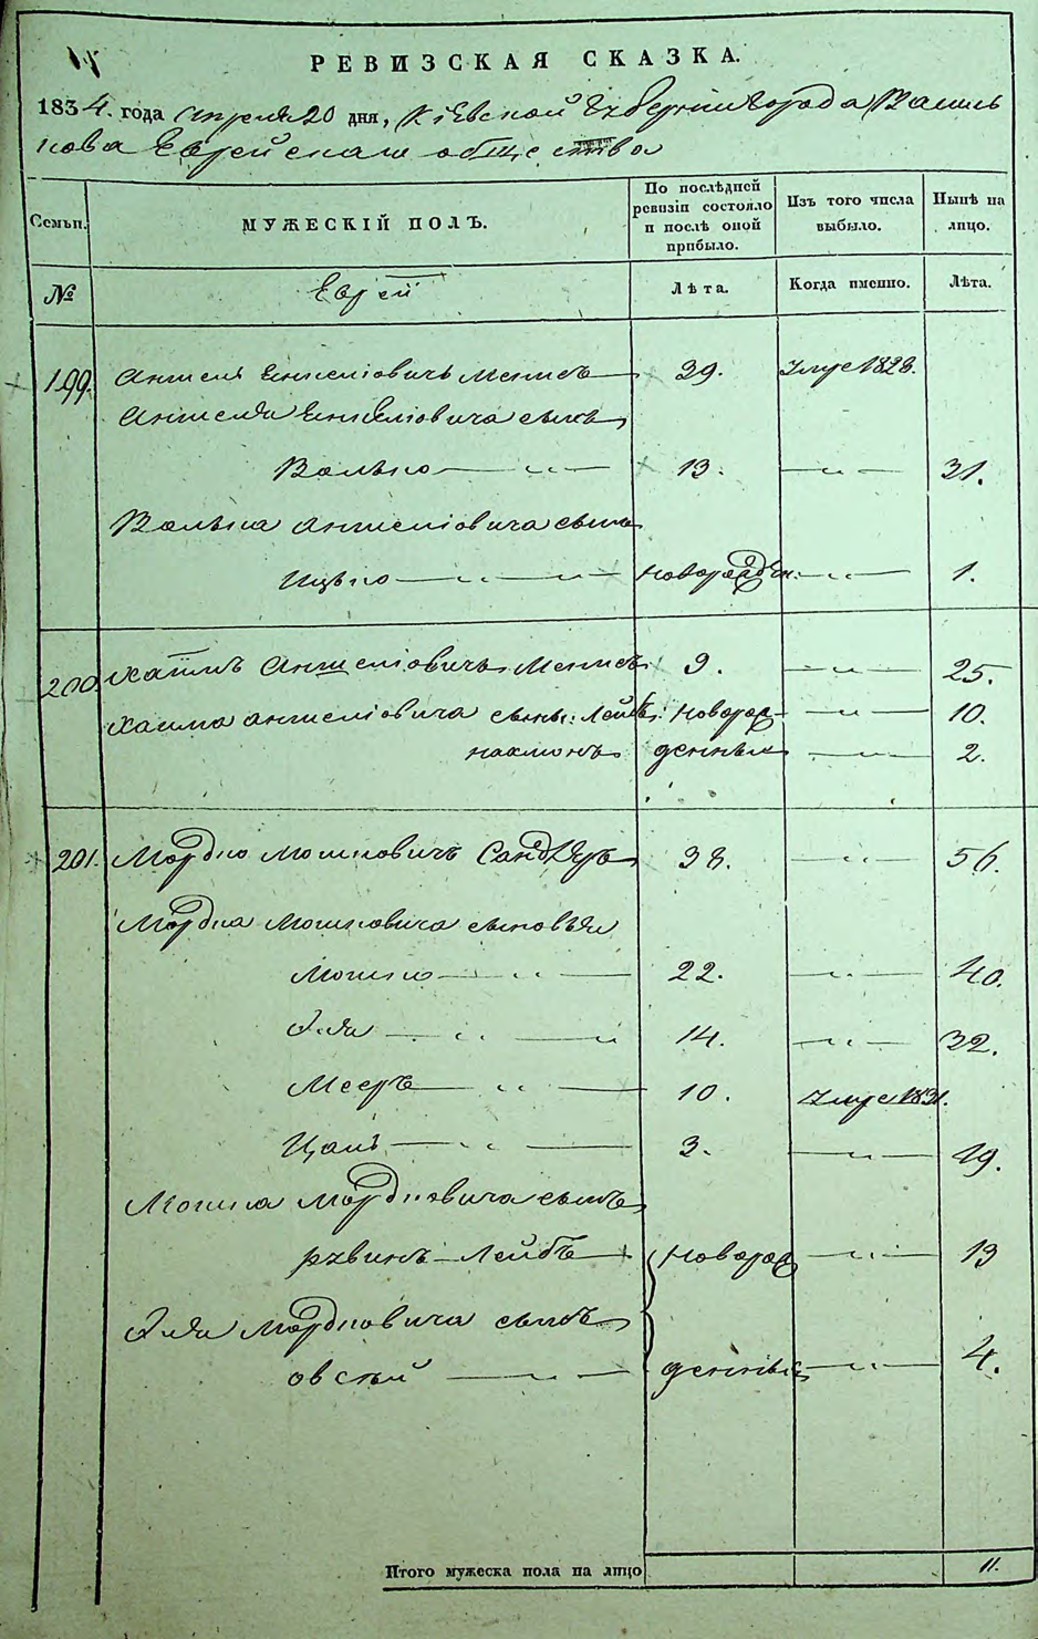 РЕВИЗСКАЯ СКАЗКА.
1834. года апреля 20 дня, Кіевской Губерніи города Василь
кова Еврейскаго общества
Семьи.
МУЖЕСКІЙ ПОЛЪ.
По послѣдней ревизіи состояло и послѣ оной прибыло.
Изъ того числа выбыло.
Нынѣ на лицо.
№
Еврей
Лѣта.
Когда именно.
Лѣта.
199. Аншель Еншеліовичъ 39. умре 1828.
Аншеля Еншеліовича сынъ
Волько 13. 31.
Волька Аншеліовича сынъ
Ицько новорожден. 1.
200. Хаимъ Аншеліовичъ 9. 25.
Хаима Аншеліовича сыны: Лейбъ: новорож 10.
Нахманъ денныя 2.
201. Мордко Мошковичъ 38. 56.
Мордка Мошковича сыновья
Мошко 22. 40.
Эля 14. 32.
Мееръ 10. умре 1831.
3. 19.
Мошка Мордковича сынъ
Рувинъ-Лейбъ новорож 13
Эля Мордковича сынъ
Овсѣй денныя 4.
Итого мужеска пола на лицо 11.